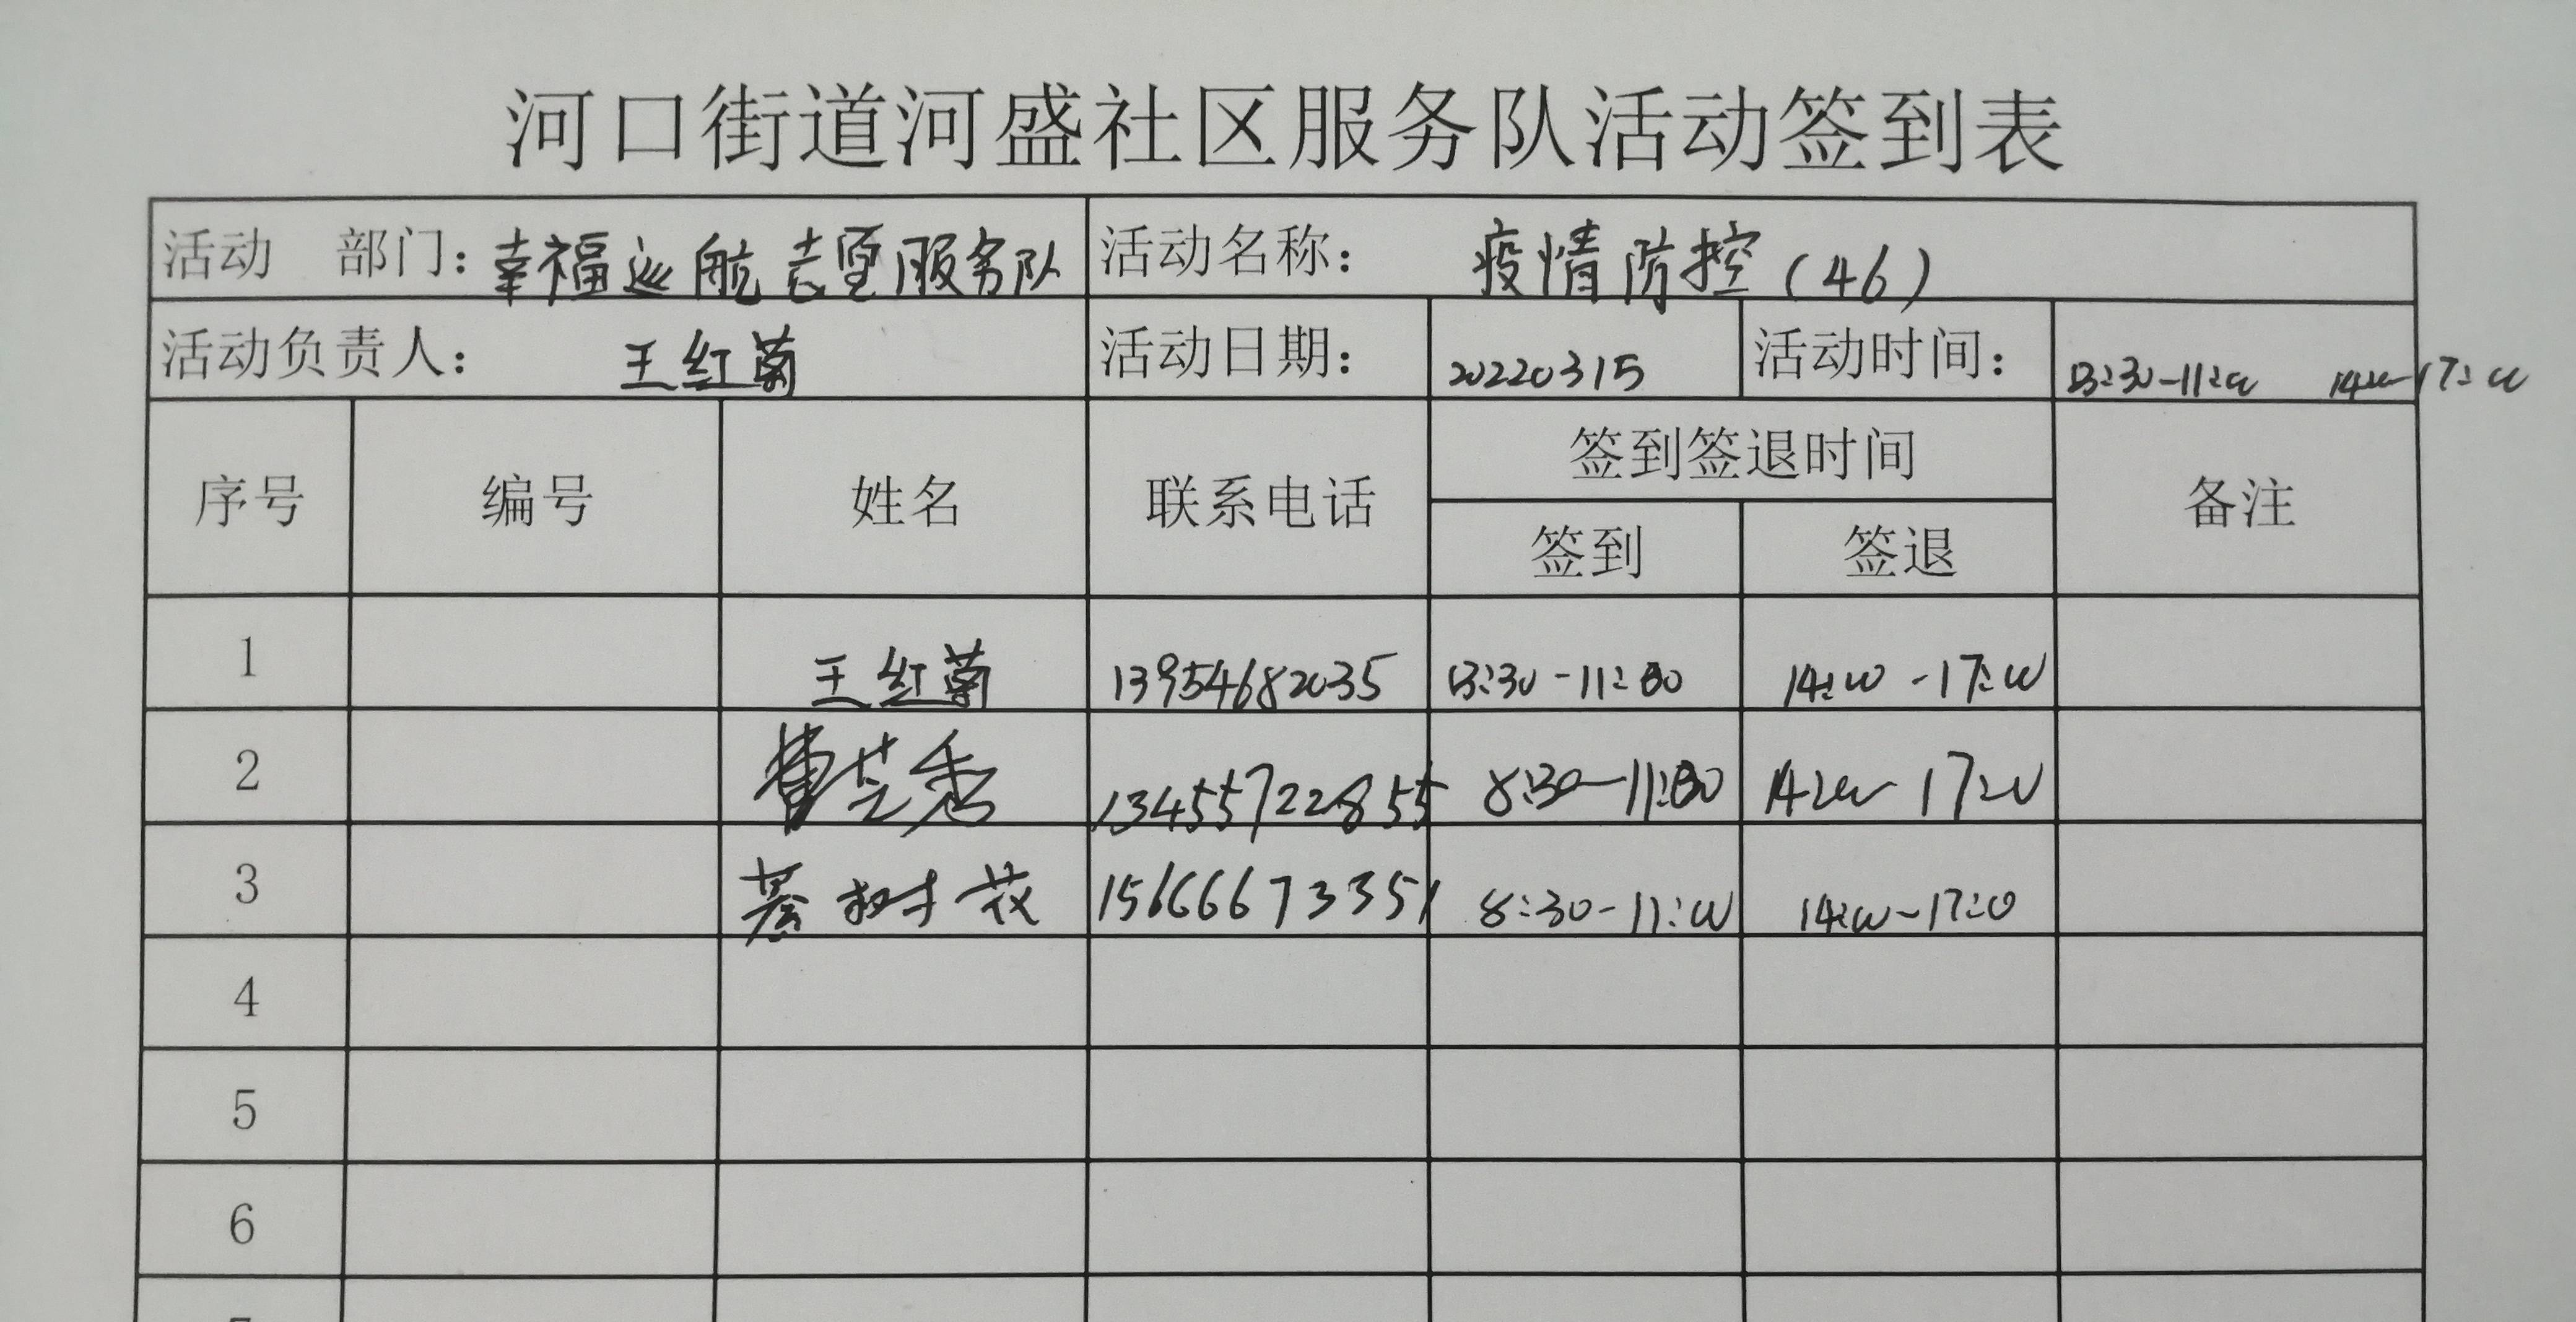 河口街道河盛社区服务队活动签到表
活动 部门：幸福远航志愿服务队 活动名称： 疫情防控（46）
活动负责人： 王红菊 活动日期： 20220315 活动时间： 8:30-11:00 14:00-17:00
序号 编号 姓名 联系电话 签到签退时间 备注
签到 签退
1 王红菊 13954682035 8:30-11:00 14:00-17:00
2 曹芝秀 13455722855 8:30-11:00 14:00-17:00
3 綦树花 15666673351 8:30-11:00 14:00-17:00
4
5
6